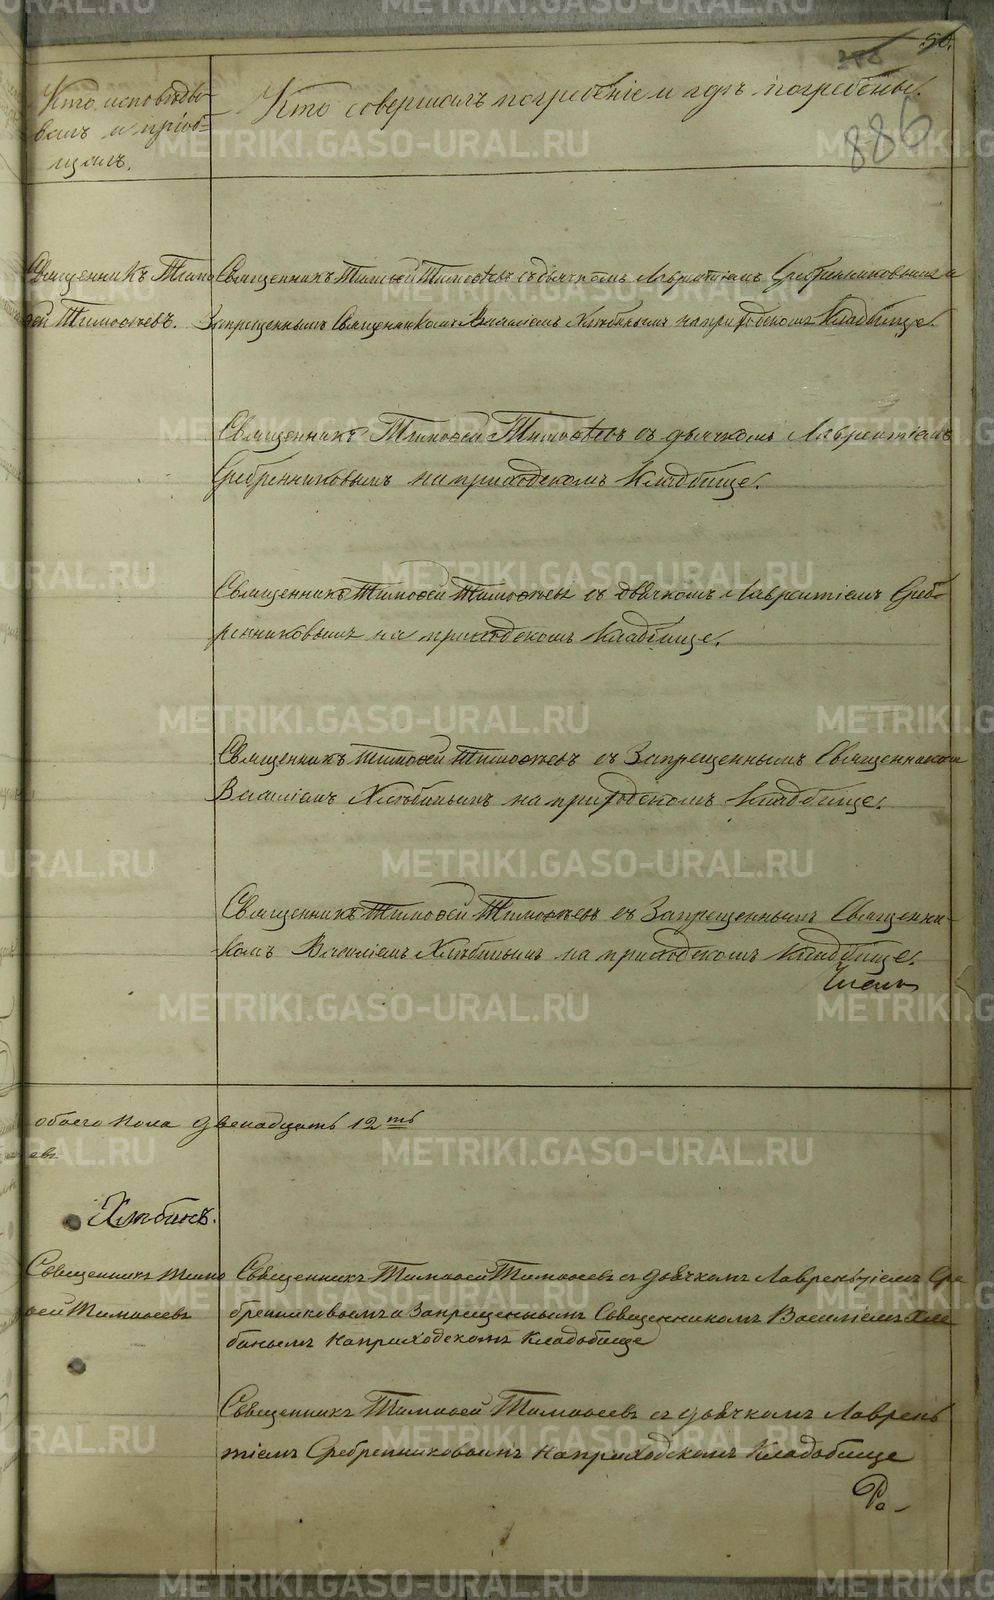 50.
886
Кто исповѣды-
валъ и пріоб-
щалъ.
Кто совершалъ погребеніе и гдѣ погребены.
Священникъ Тимо
ѳей Тимоѳеевъ.
Священникъ Тимоѳей Тимоѳеевъ съ дьячкомъ Лаврентіемъ Сребренниковымъ и
Запрещеннымъ Священникомъ Василіемъ Хлѣбинымъ на приходскомъ Кладбище.
Священникъ Тимоѳей Тимоѳеевъ съ дьячкомъ Лаврентіемъ
Сребренниковымъ на приходскомъ Кладбище.
Священникъ Тимоѳей Тимоѳеевъ съ дьячкомъ Лаврентіемъ Среб-
ренниковымъ на приходскомъ Кладбище.
Священникъ Тимоѳей Тимоѳеевъ съ Запрещеннымъ Священникомъ
Василіемъ Хлѣбинымъ на приходскомъ Кладбище.
Священникъ Тимоѳей Тимоѳеевъ съ Запрещеннымъ Священни-
комъ Василіемъ Хлѣбинымъ на приходскомъ Кладбище.
обоего пола двенадцать 12ть
евъ
Хлѣбинъ.
Священникъ Тимо
ѳей Тимоѳеевъ
Священникъ Тимоѳей Тимоѳеевъ съ дьячкомъ Лаврентіемъ Сре
бренниковымъ и Запрещеннымъ Священникомъ Василіемъ Хлѣ
бинымъ на приходскомъ Кладбище
Священникъ Тимоѳей Тимоѳеевъ съ дьячкомъ Лаврень
тіемъ Сребренниковымъ на приходскомъ Кладбище
Ро-
METRIKI.GASO-URAL.RU